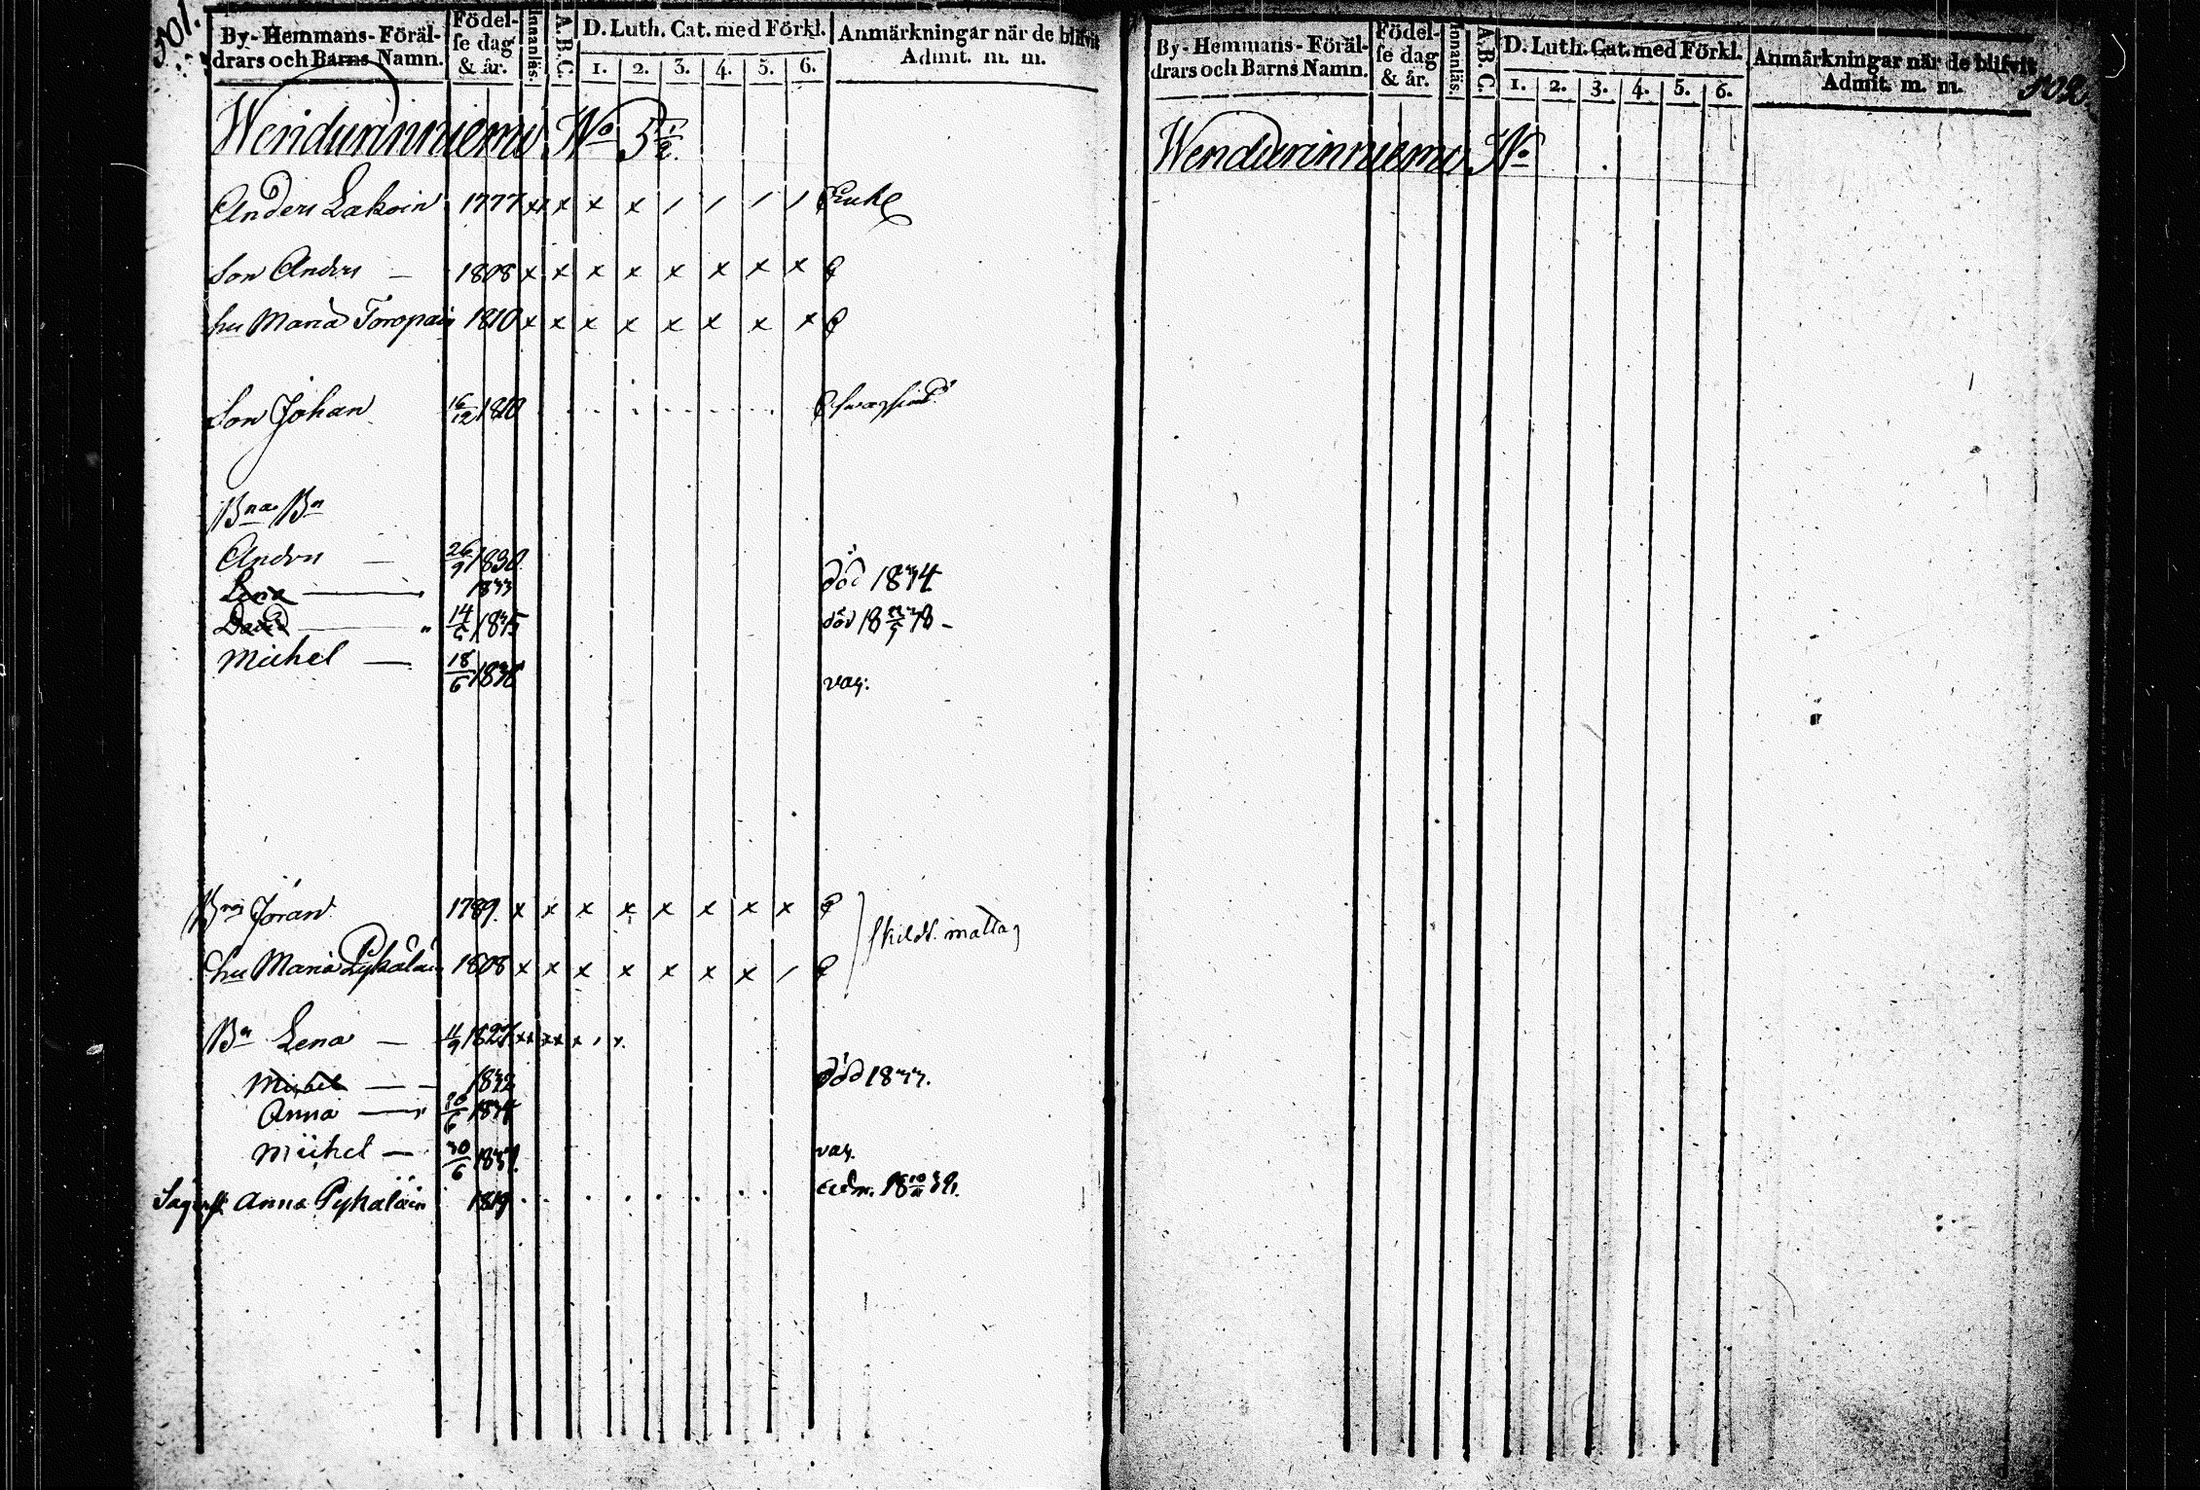 501.
By-Hemmans-Föräl-
drars och Barns Namn.
Födel-
se dag
& år.
Innanläs.
A.B.C.
D. Luth. Cat. med Förkl.
1. 2. 3. 4. 5. 6.
Anmärkningar när de blifvit
Admit. m. m.
Wendurinniemi No 5 1/2.
Anders Lakoin 1777 x x x x / / / / Enkl
Son Anders — 1808 x x x x x x x x
hu Maria Toropain 1810 x x x x x x x x
Son Johan 16/12 1810
Bna Bn
Anders — 26/9 1830
Lena — 1833 död 1834
David — " 14/6 1835 död 18
Michel — 18/6 1838 vac:
Bror Jöran 1789. x x x x x x x x
skild. matlag
hu Maria Pykäläin 1808 x x x x x x x /
Bn Lena — 1827
Michel — 1832 död 1833.
Anna — " 1834
Michel — 30/6 1837. vac.
Anna Pykäläin 1819 Adm.
By-Hemmans-Föräl-
drars och Barns Namn.
Födel-
se dag
& år.
Innanläs.
A.B.C.
D. Luth. Cat. med Förkl.
1. 2. 3. 4. 5. 6.
Anmärkningar när de blifvit
Admit. m. m.
502.
Wendurinniemi No